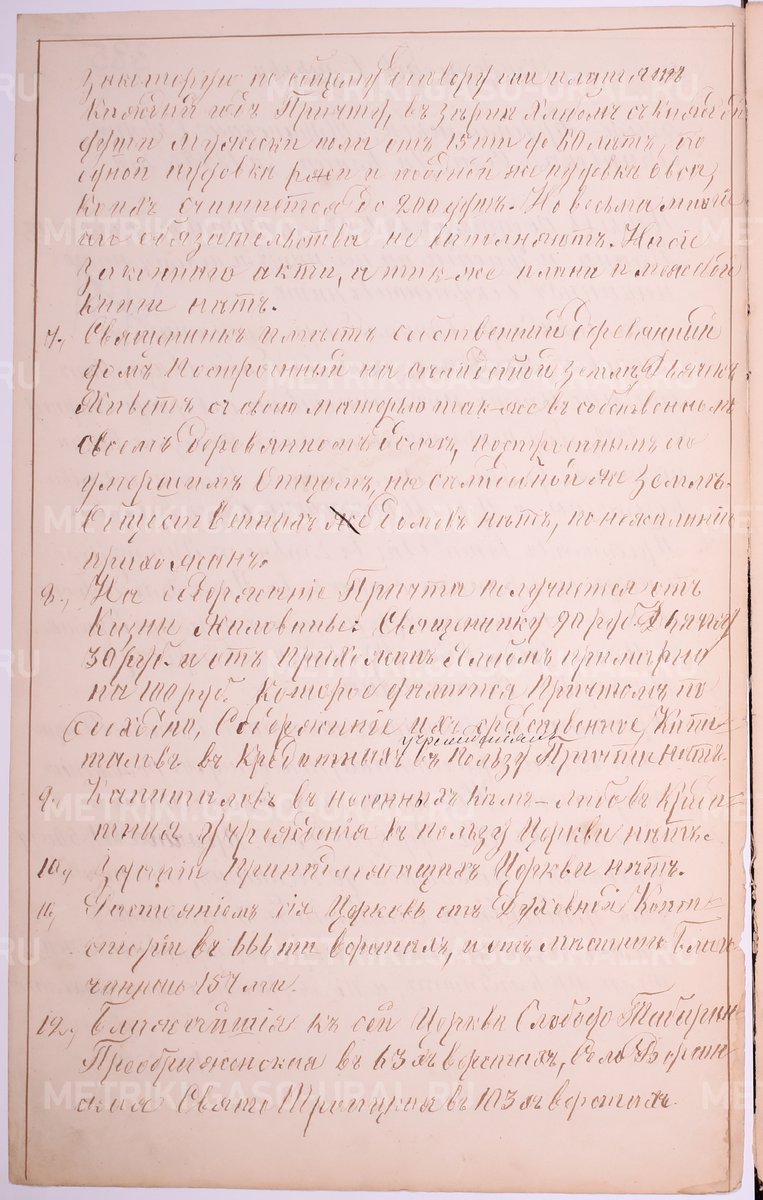 за которую по общему договору они платятъ
каждый годъ Причту, въ зернѣ хлѣбомъ съ каждой
души мужеска пола отъ 15ти до 60 лѣтъ, по
одной пудовкѣ ржи и по одной же пудовкѣ овса,
коихъ считается до 200 душъ. Но весьма многіе
обязательства не выполняютъ. На сіе
законнаго акта, а такъ же плана и межевой
книги нѣтъ.
7., Священникъ имѣетъ собственный деревянный
домъ построенный на усадебной землѣ, Дьячекъ
живетъ съ своею матерью также въ собственномъ
своемъ деревянномъ домѣ, построеннымъ его
умершимъ Отцомъ, на усадебной же землѣ.
Общественныхъ же домовъ нѣтъ, по нежеланію
прихожанъ.
8., На содержаніе Причта получается отъ
Казны жалованье: Священнику 90 руб. Дьячку
30 руб. и отъ прихожанъ хлѣбомъ примѣрно
на 100 руб. которое дѣлится Причтомъ по
Содержаніе ихъ Капи-
таловъ въ Кредитныхъ учрежденіяхъ въ пользу Причта нѣтъ.
9., Капиталовъ внесенныхъ кѣмъ-либо въ Креди-
тныя учрежденія въ пользу Церкви нѣтъ.
10., Зданій принадлежащихъ Церкви нѣтъ.
11., Разстояніемъ сія Церковь отъ Духовной Конси-
сторіи въ 666ти верстахъ, и отъ мѣстнаго Благо-
чиннаго 157ми.
12., Ближайшія къ сей Церкви Слобода Табарин-
Преображенская въ 63хъ верстахъ, Село
ская Свято Троицкая въ 103хъ верстахъ.